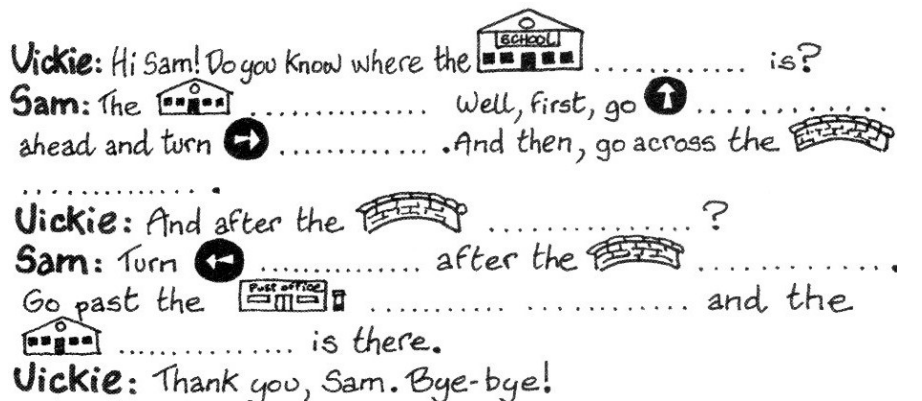 SCHOOL
Vickie: Hi Sam! Do you know where the ............. is?
Sam: The ............... Well, first, go ...............
ahead and turn ............. . And then, go across the
............... .
Vickie: And after the ............... ?
Sam: Turn ............... after the ............... .
Post office
Go past the ........... ............ and the
............... is there.
Vickie: Thank you, Sam. Bye-bye!